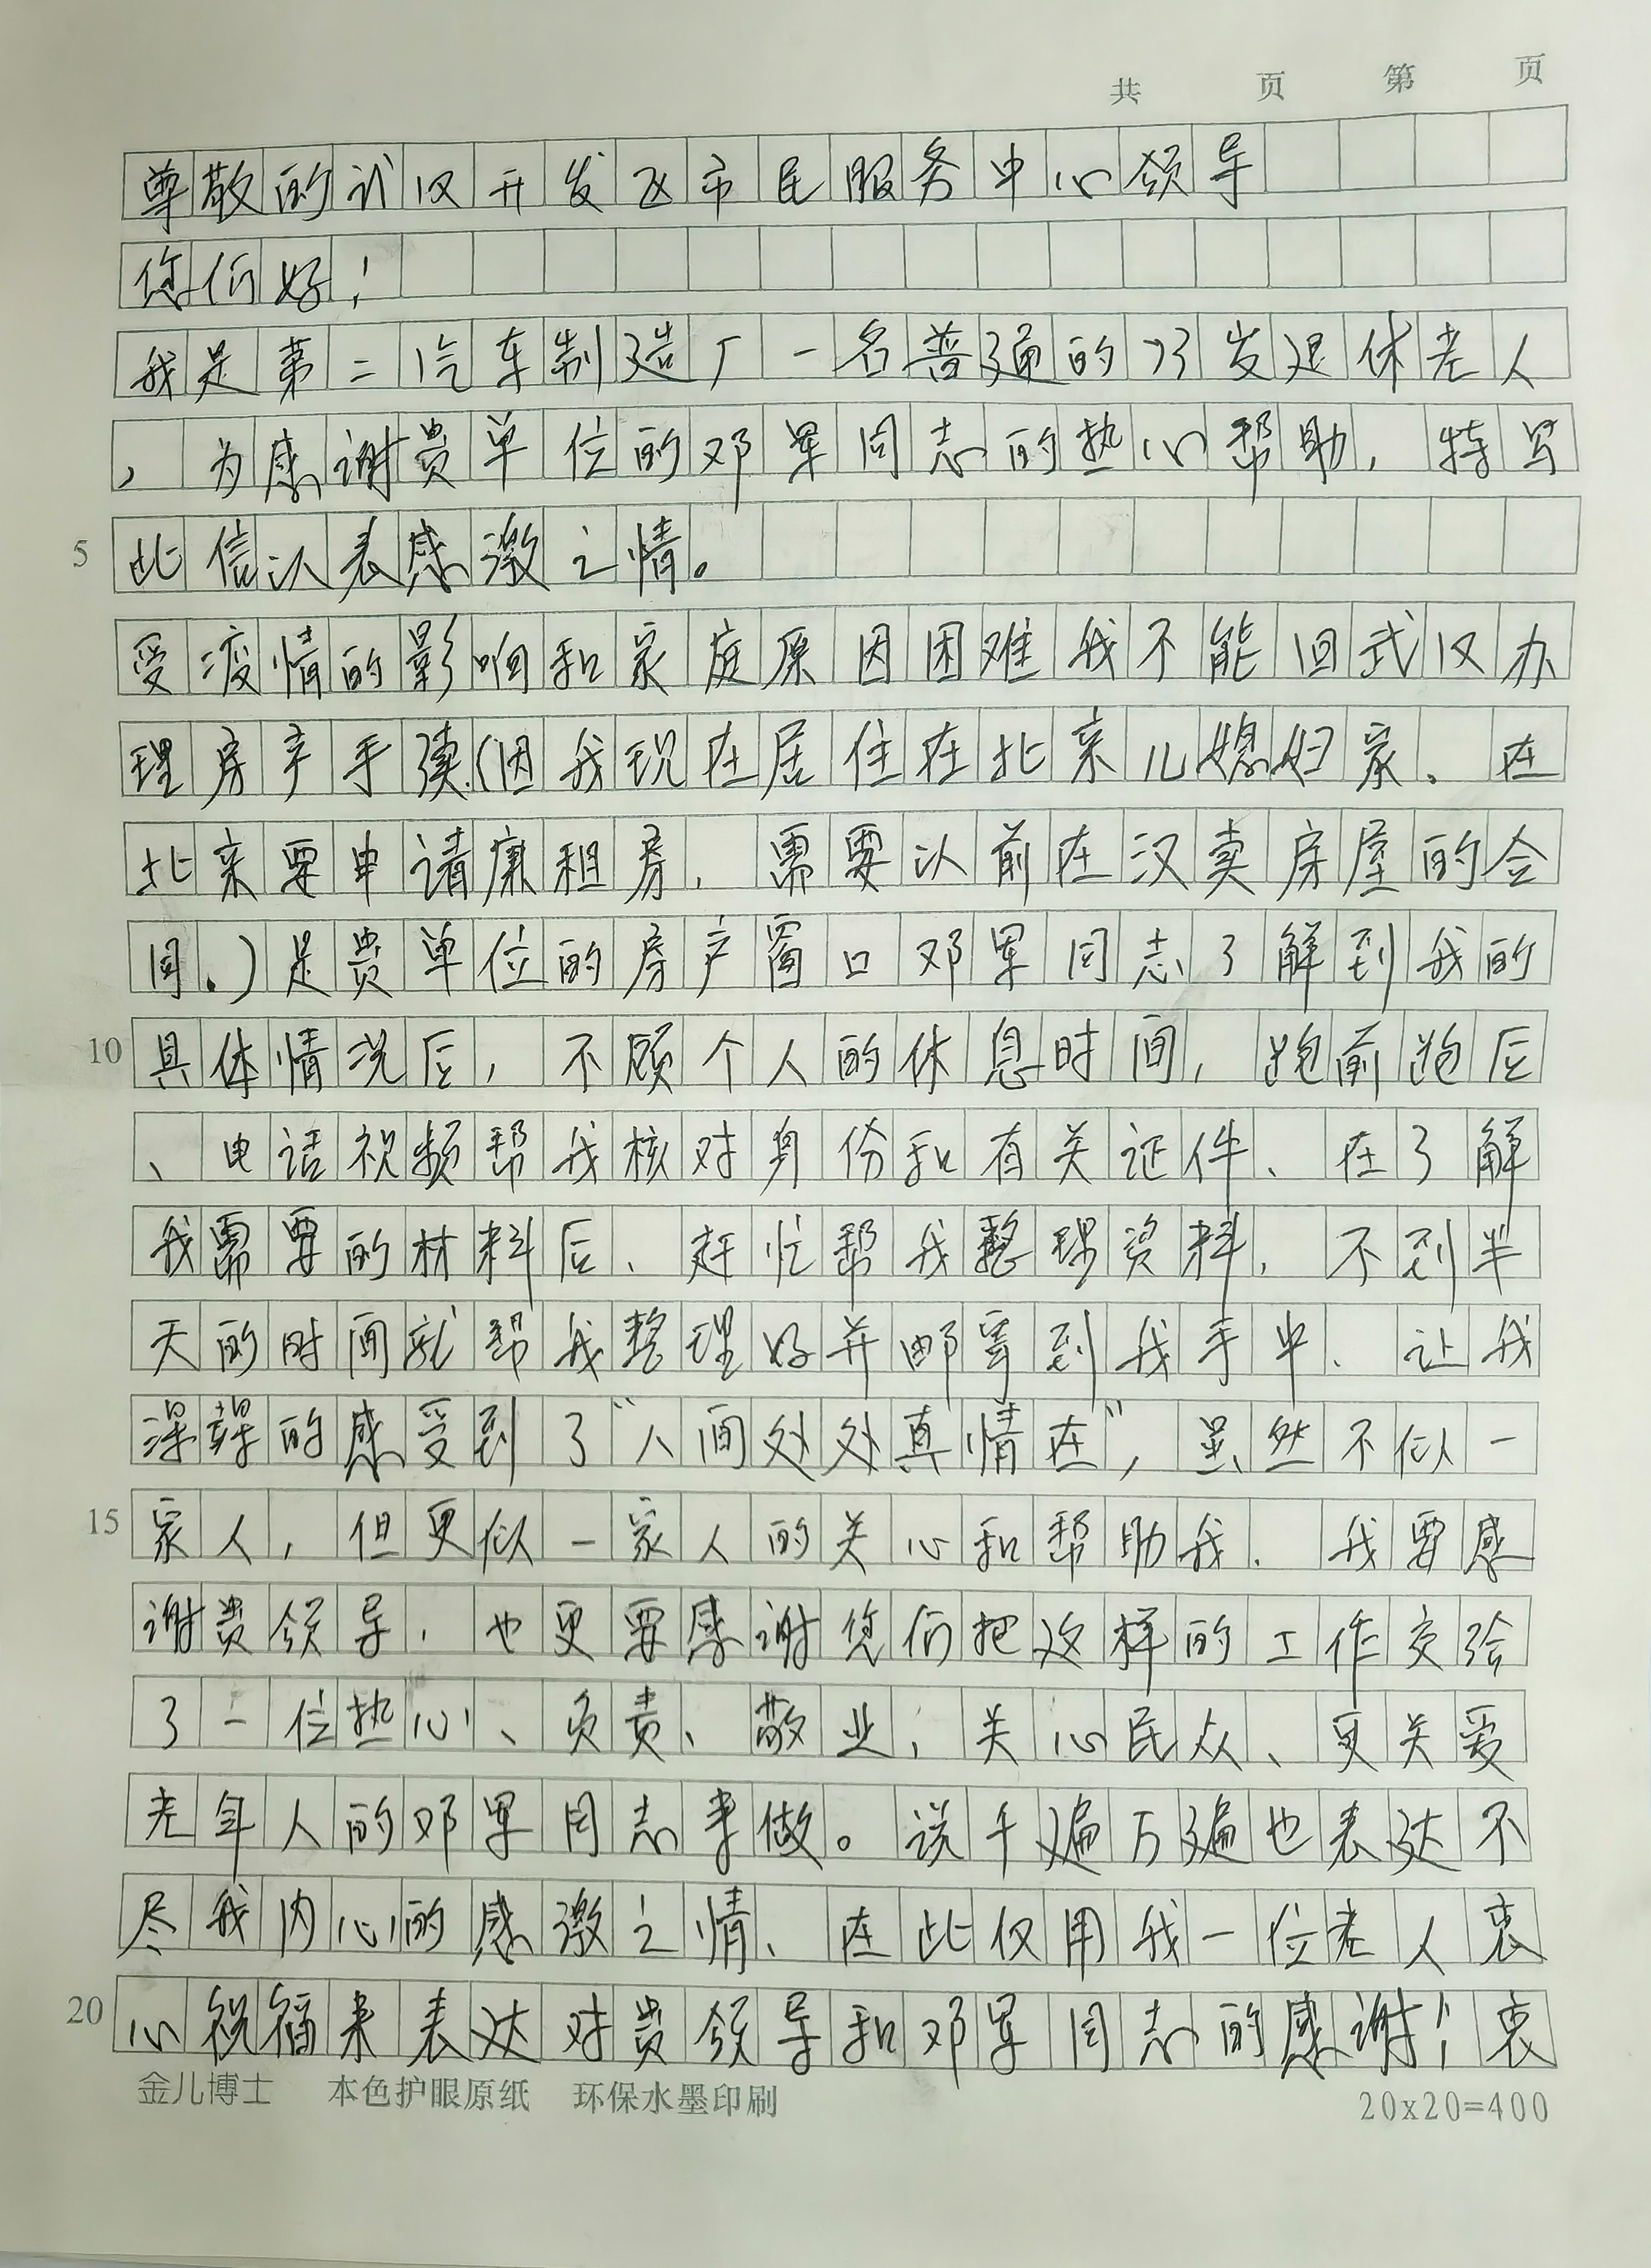 共 页 第 页
尊敬的武汉开发区市民服务中心领导
您们好！
我是第二汽车制造厂一名普通的73岁退休老人
，为感谢贵单位的邓军同志的热心帮助，特写
5 此信以表感激之情。
受疫情的影响和家庭原因困难我不能回武汉办
理房产手续.(因我现在居住在北京儿媳妇家、在
北京要申请廉租房，需要以前在汉卖房屋的合
同.)是贵单位的房产窗口邓军同志了解到我的
10 具体情况后，不顾个人的休息时间，跑前跑后
、电话视频帮我核对身份和有关证件、在了解
我需要的材料后、赶忙帮我整理资料，不到半
天的时间就帮我整理好并邮寄到我手中、让我
深深的感受到了“人间处处真情在”，虽然不似一
15 家人，但更似一家人的关心和帮助我.我要感
谢贵领导，也更要感谢您们把这样的工作交给
了一位热心、负责、敬业，关心民众、更关爱
老年人的邓军同志来做。说千遍万遍也表达不
尽我内心的感激之情、在此仅用我一位老人衷
20 心祝福来表达对贵领导和邓军同志的感谢！衷
金儿博士 本色护眼原纸 环保水墨印刷 20x20=400